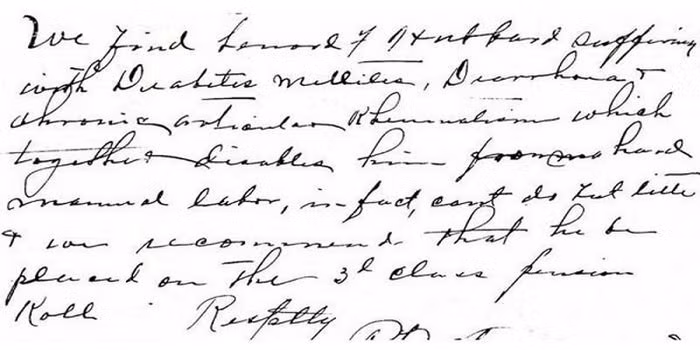 We find Lenard F Hubbard suffering
with Diabetis Mellites, Diarrhoea &
chronic articular Rhumatism which
together disables him from hard
manual labor, in fact, cant do but little
& we recommend that he be
placed on the 3d class pension
Roll Resptlly